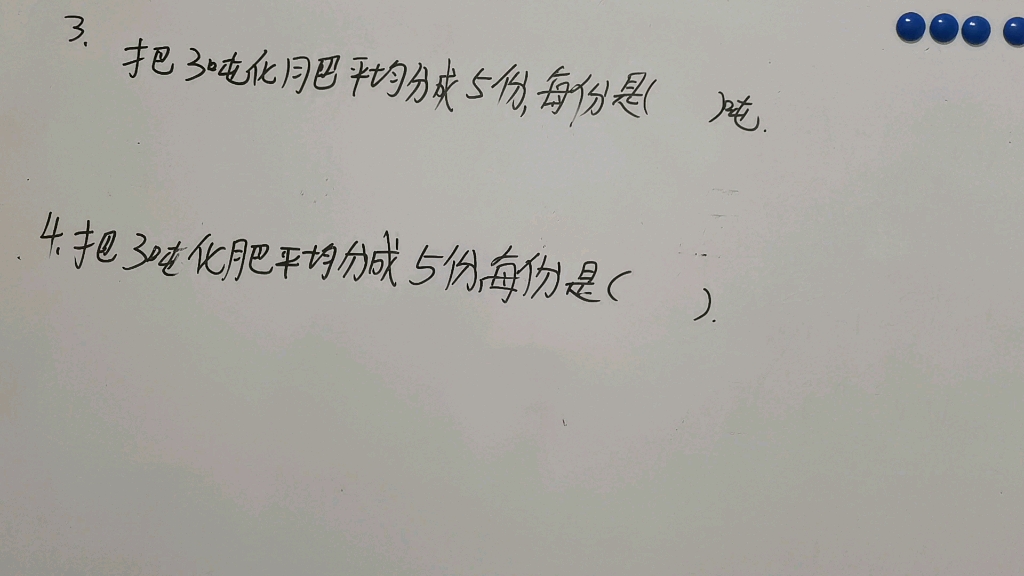 3.
把3吨化肥平均分成5份,每份是( )吨.
4.把3吨化肥平均分成5份,每份是( ).